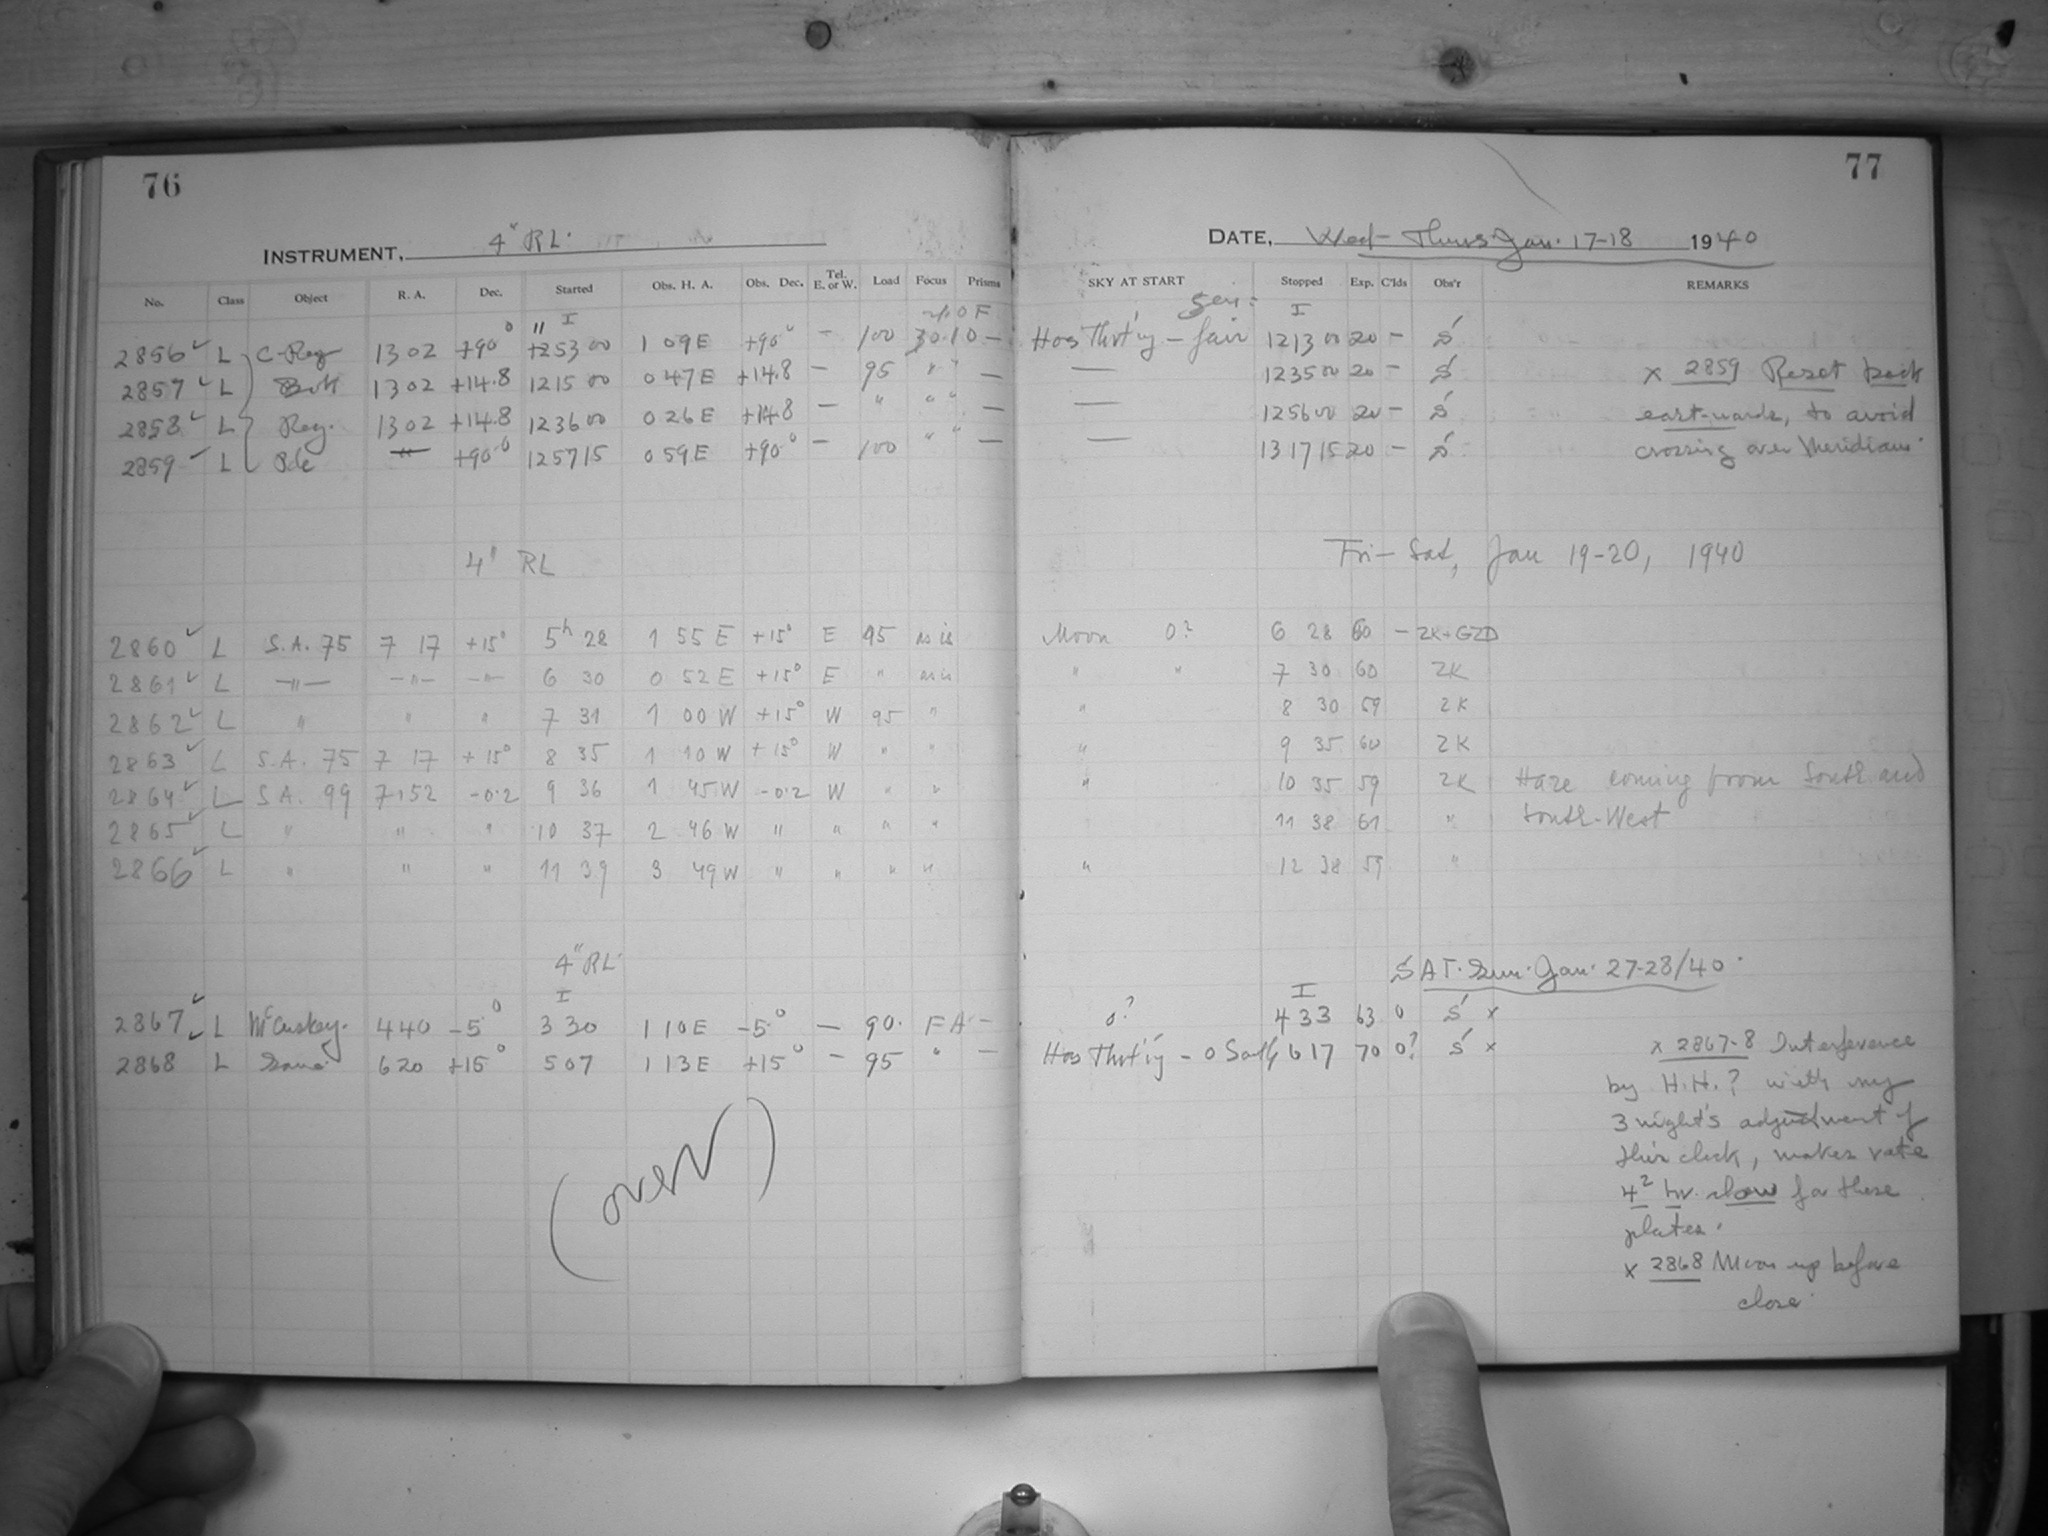 76
77
INSTRUMENT, 4" RL.
DATE, Wed-Thurs Jan. 17-18 1940
No. Class Object R. A. Dec. Started Obs. H. A. Obs. Dec. Tel. E. or W. Load Focus Prisms SKY AT START Stopped Exp. C'lds Obs'r REMARKS
I I
2856 L C-Reg 1302 +90° 1 09E +90° - 100 - - fair 1213 00 20 - S
2857 L 1302 +14.8 1215 00 0 47E +14.8 - 95 " " - — 1235 00 20 - S x 2859 Reset back
2858 L Reg. 1302 +14.8 1236 00 0 26E +14.8 - " " " - — 1256 00 20 - S east-wards, to avoid
2859 L Pole " +90° 1257 15 0 59E +90° - 100 " " - — 1317 15 20 - S crossing over Meridian.
4" RL Fri-Sat, Jan 19-20, 1940
2860 L S.A. 75 7 17 +15° 5h 28 1 55 E +15° E 95 as is Moon 0? 6 28 60 - ZK+GZD
2861 L -"- -"- -"- 6 30 0 52 E +15° E " as is " " 7 30 60 ZK
2862 L " " " 7 31 1 00 W +15° W 95 " " 8 30 59 ZK
2863 L S.A. 75 7 17 +15° 8 35 1 10 W +15° W " " " 9 35 60 ZK
2864 L S.A. 99 7.52 -0.2 9 36 1 45 W -0.2 W " " " 10 35 59 ZK Haze coming from South and
2865 L " " " 10 37 2 46 W " " " " 11 38 61 " South-West
2866 L " " " 11 39 3 49 W " " " " " 12 38 59 "
4" RL. SAT. Sun. Jan. 27-28/40.
I I
2867 L McCuskey. 440 -5° 3 30 1 10E -5° - 90. FA - 0? 4 33 63 0 S x
2868 L 620 +15° 5 07 1 13E +15° - 95 " - - 0 6 17 70 0? S x
x 2867-8 Interference
by H.H.? with my
3 night's adjustment of
this clock, makes rate
slow for these
plates.
x 2868 Moon up before
close.
(over)